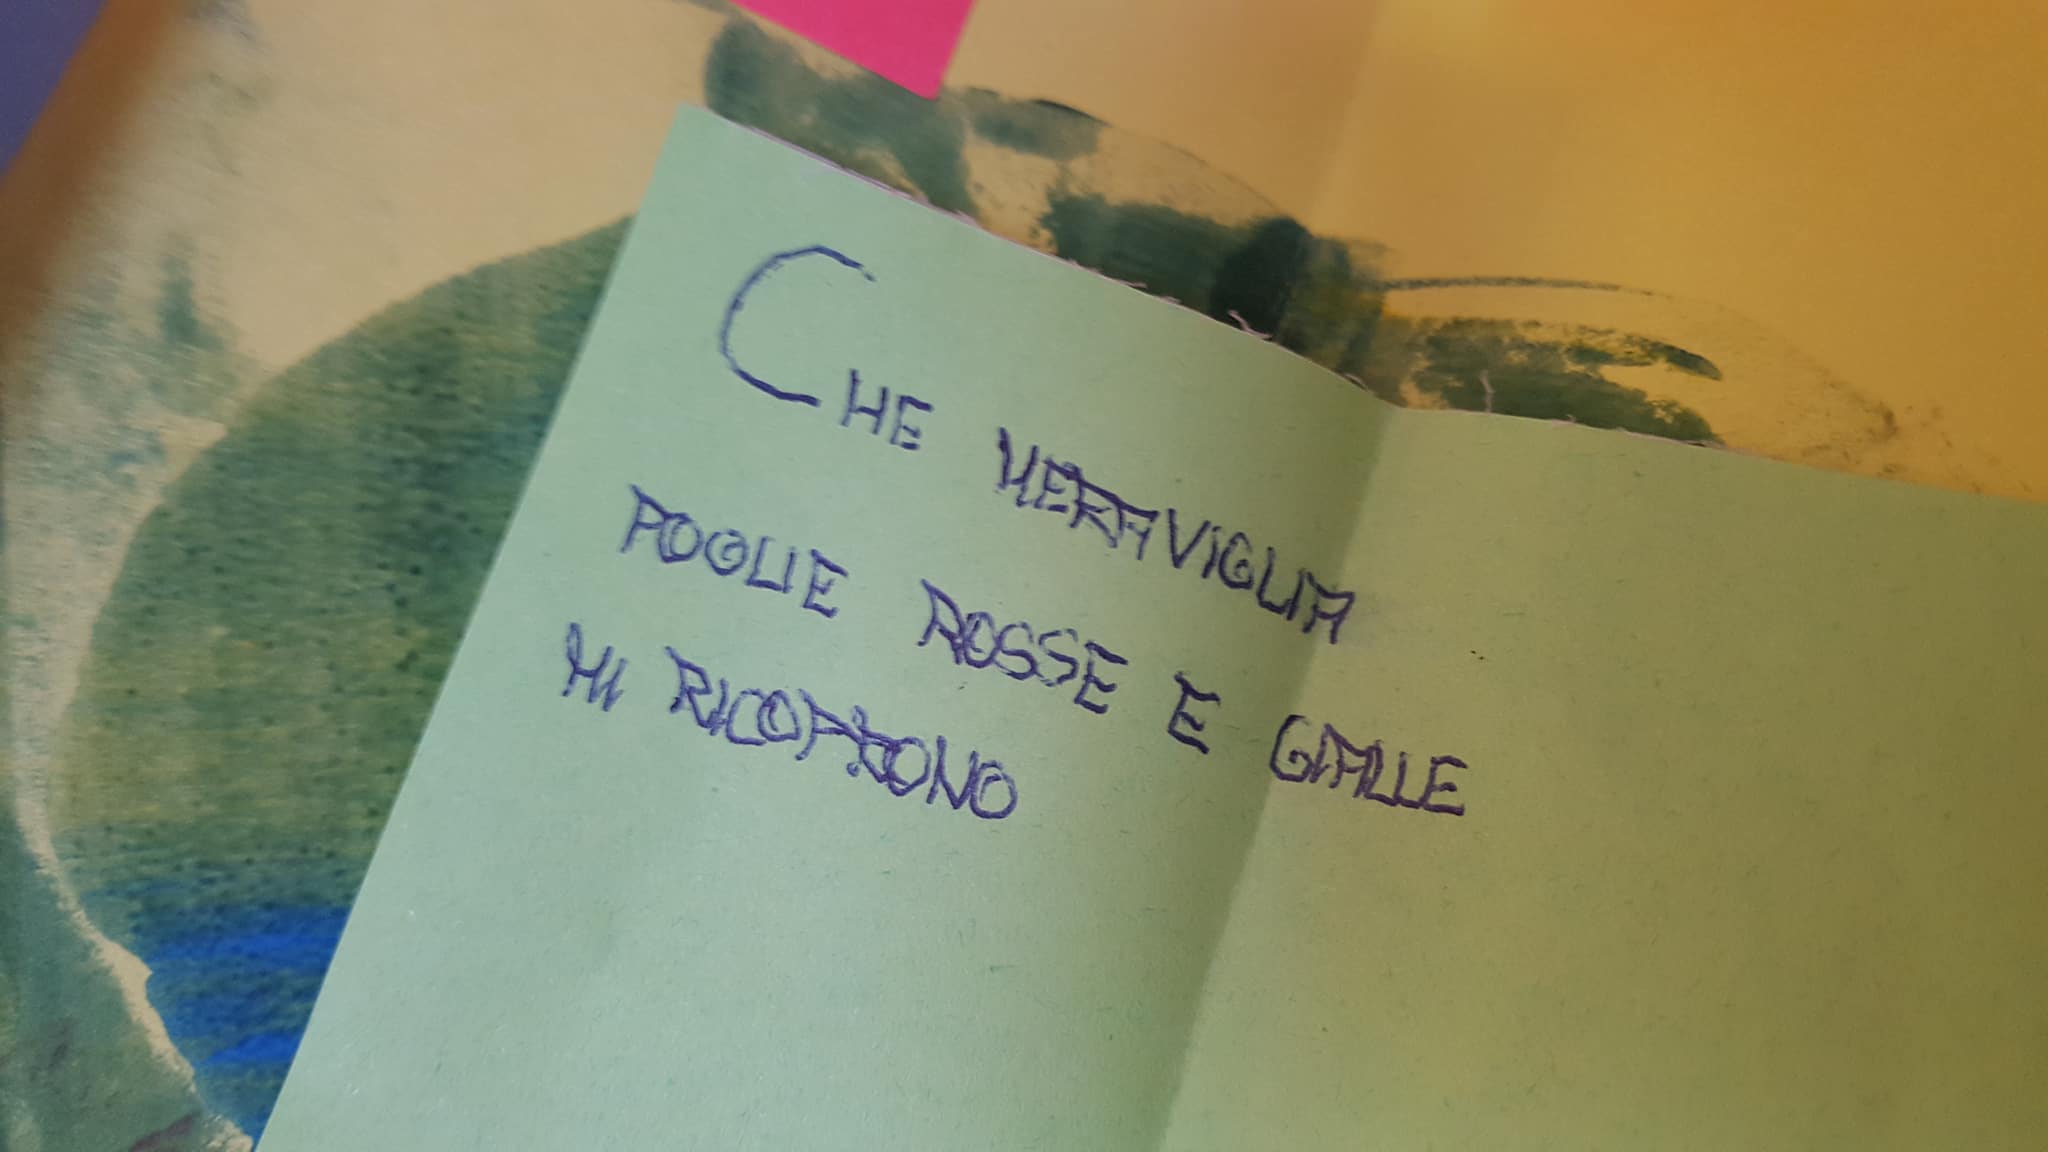 CHE MERAVIGLIA
FOGLIE ROSSE E GIALLE
MI RICOPRONO